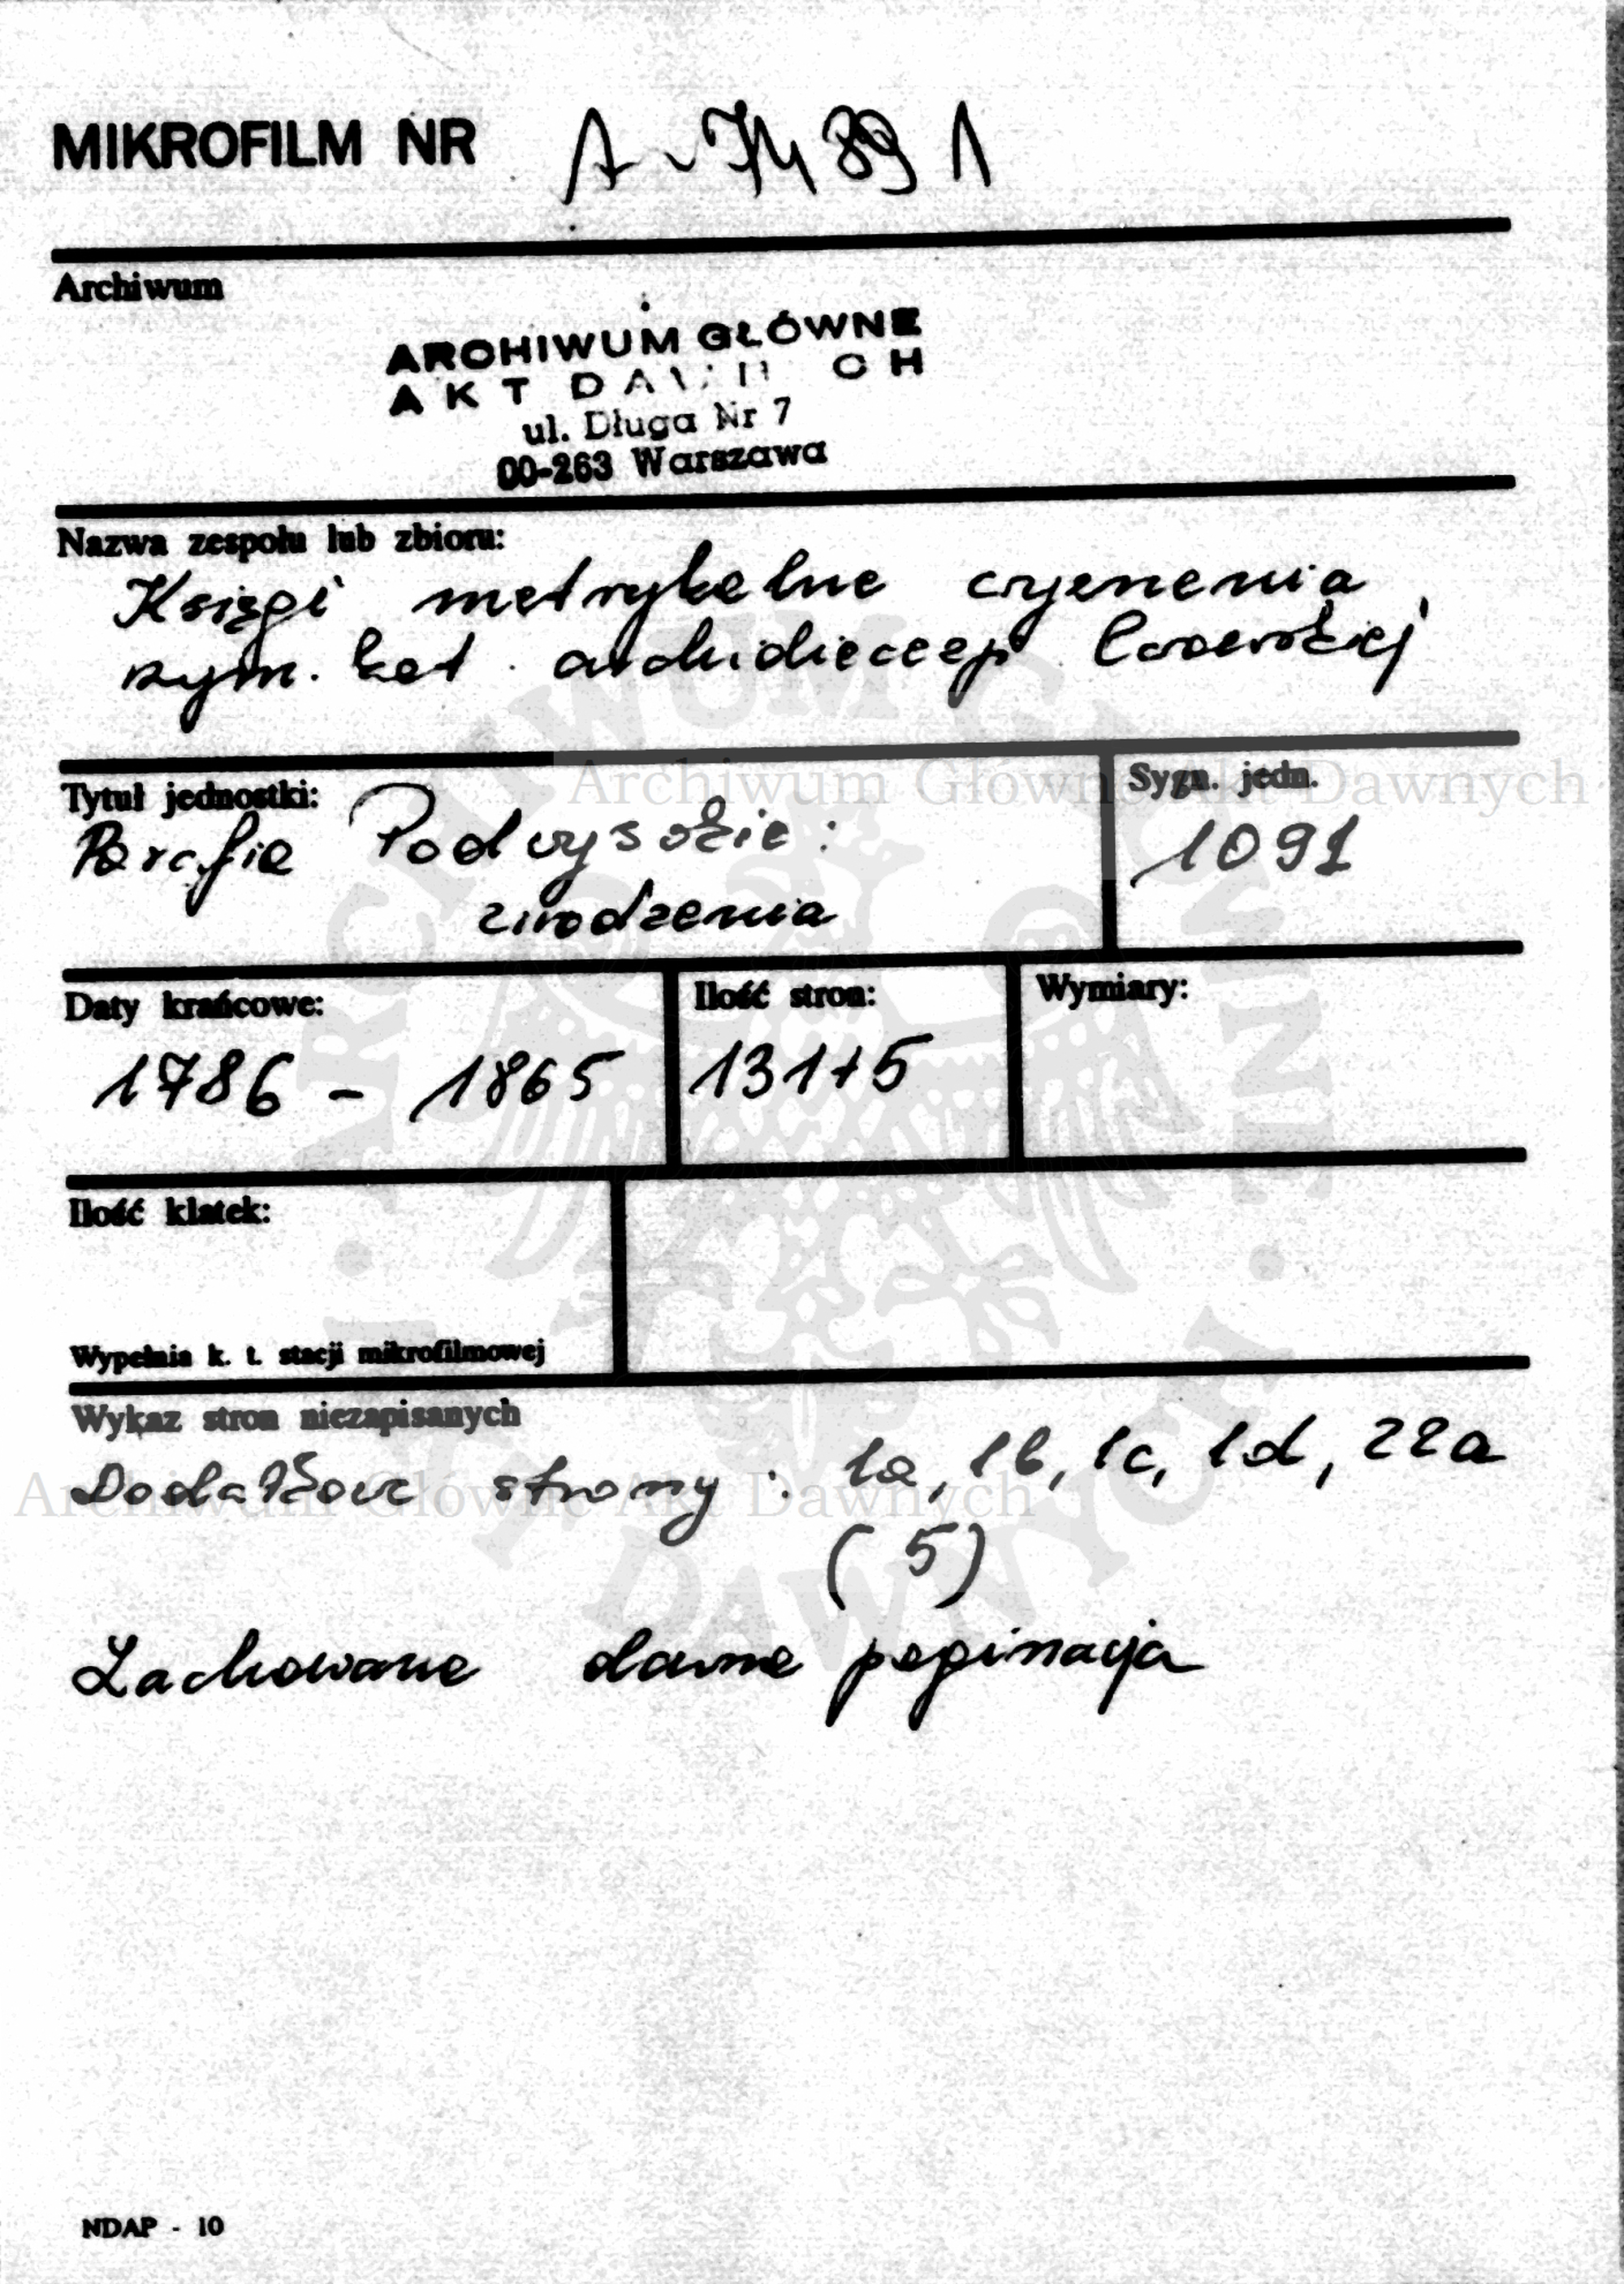 MIKROFILM NR A-74891
Archiwum
ARCHIWUM GŁÓWNE
AKT DAWNYCH
ul. Długa Nr 7
00-263 Warszawa
Nazwa zespołu lub zbioru:
Księgi metrykalne
rzym. kat. archidiecezji lwowskiej
Tytuł jednostki:
Parafia Podwysokie:
urodzenia
Sygn. jedn.
1091
Daty krańcowe:
1786 - 1865
Ilość stron:
131+5
Wymiary:
Ilość klatek:
Wypełnia k. t. stacji mikrofilmowej
Wykaz stron niezapisanych
Dodatkowe strony: 1a, 1b, 1c, 1d, 22a
(5)
Zachowane dawne paginacja
NDAP - 10
Archiwum Główne Akt Dawnych
Archiwum Główne Akt Dawnych
ARCHIWUM GŁÓWNE AKT DAWNYCH